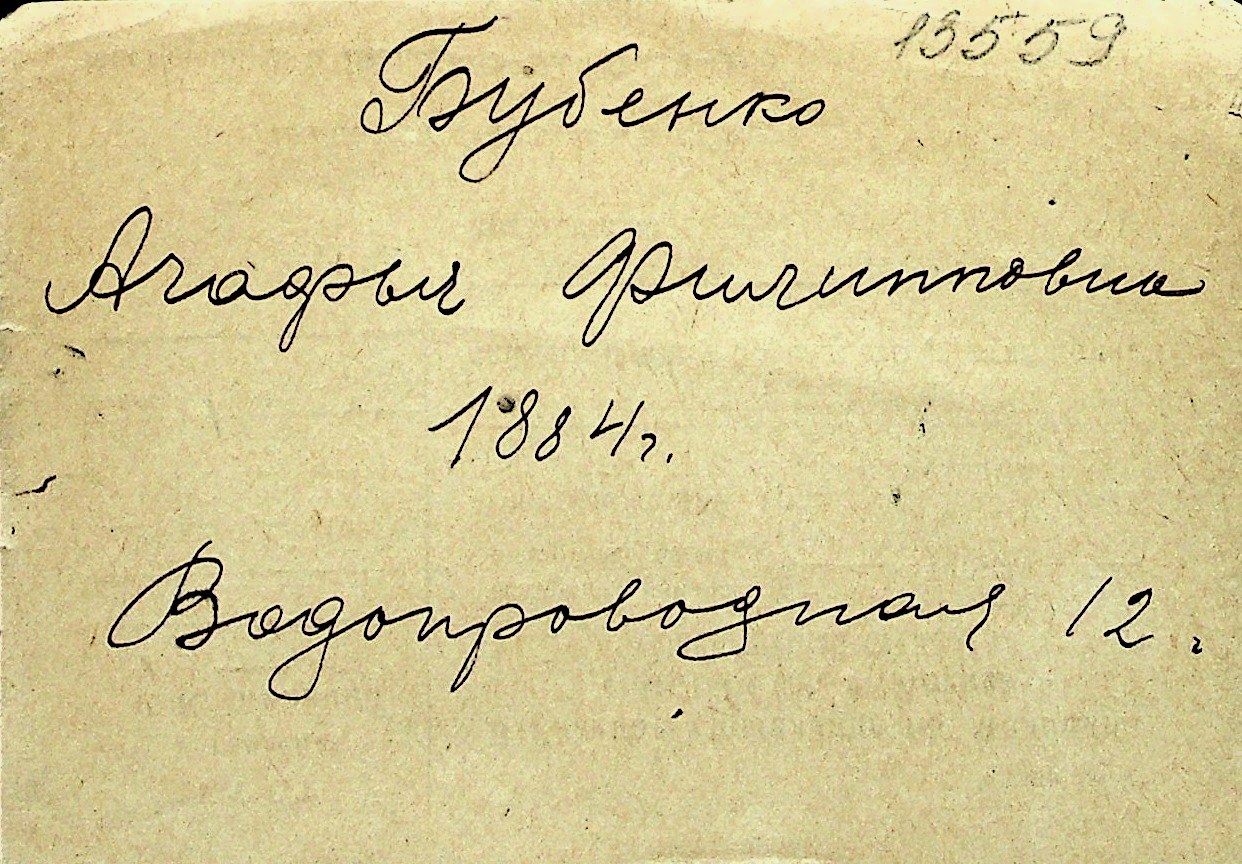 13559
Бубенко
Агафья Филипповна
1884г.
Водопроводная 12.